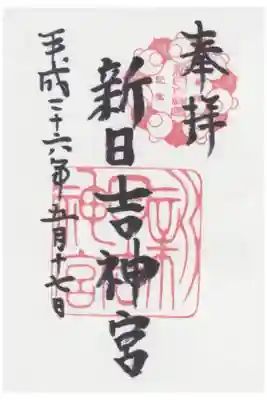 奉拝
新日吉神宮
平成二十六年五月十七日